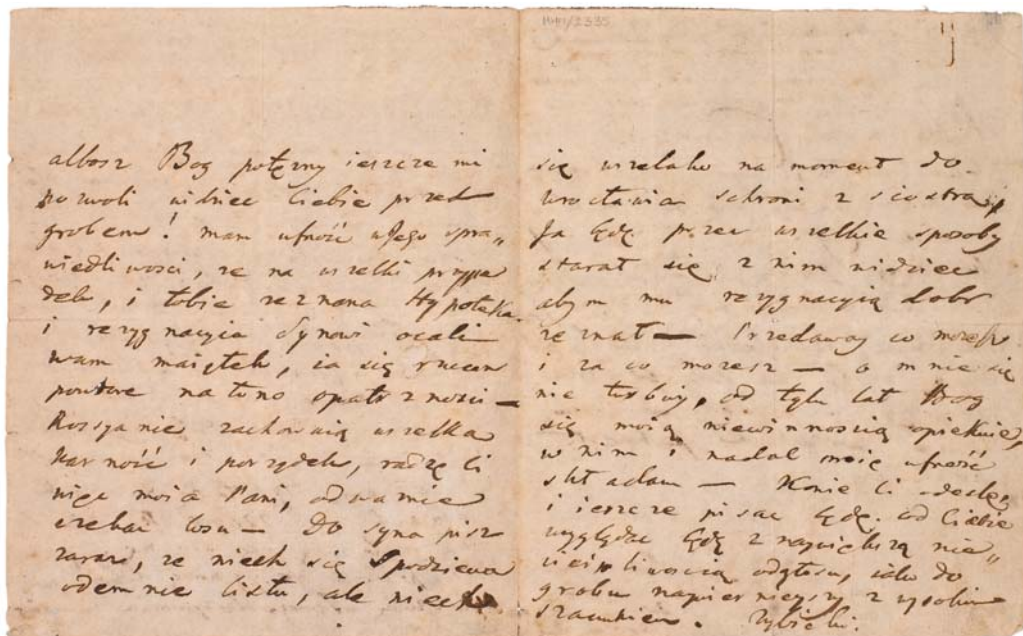 albosz Bog potężny ieszcze mi
pozwoli widziec Ciebie przed
grobem! mam ufność w Jego spra„
wiedliwosci, ze na wszelki przypa
dek, i tobie zeznana Hypoteka
i rezygnacyia Synowi ocali
wam maiątek, ia się rzucam
powtore na łono opatrznosci —
Rossyanie zachowuią wszelką
karność i porządek, radzę Ci
więc moia Pani, odwaznie
czekac losu — Do syna pisz
zaraz, ze niech się spodziewa
odemnie listu, ale niech
1441/2335
się wszelako na moment do
Wrocławia schroni z siostrą,
Ja będę przez wszelkie sposoby
starał się z nim widziec
abym mu rezygnacyią dobr
zeznał — Przedaway co mozesz
i za co mozesz — o mnie się
nie turbuy, od tylu lat Bog
się moią niewinnoscią opiekuie,
w nim i nadal moię ufność
składam — Konie Ci odeslę,
i ieszcze pisac będę. od Ciebie
wyglądac będę z naywiększą nie„
cierpliwoscią odgłosu, iako do
grobu naypierwszy z
szacunkiem.